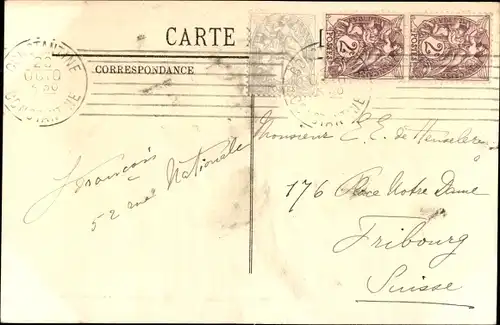 CARTE
CORRESPONDANCE
CONSTANTINE
CONSTANTINE
2
POSTES
2
POSTES
J. François
52 rue Nationale
Monsieur E. E. de
176 Place Notre Dame
Fribourg
Suisse